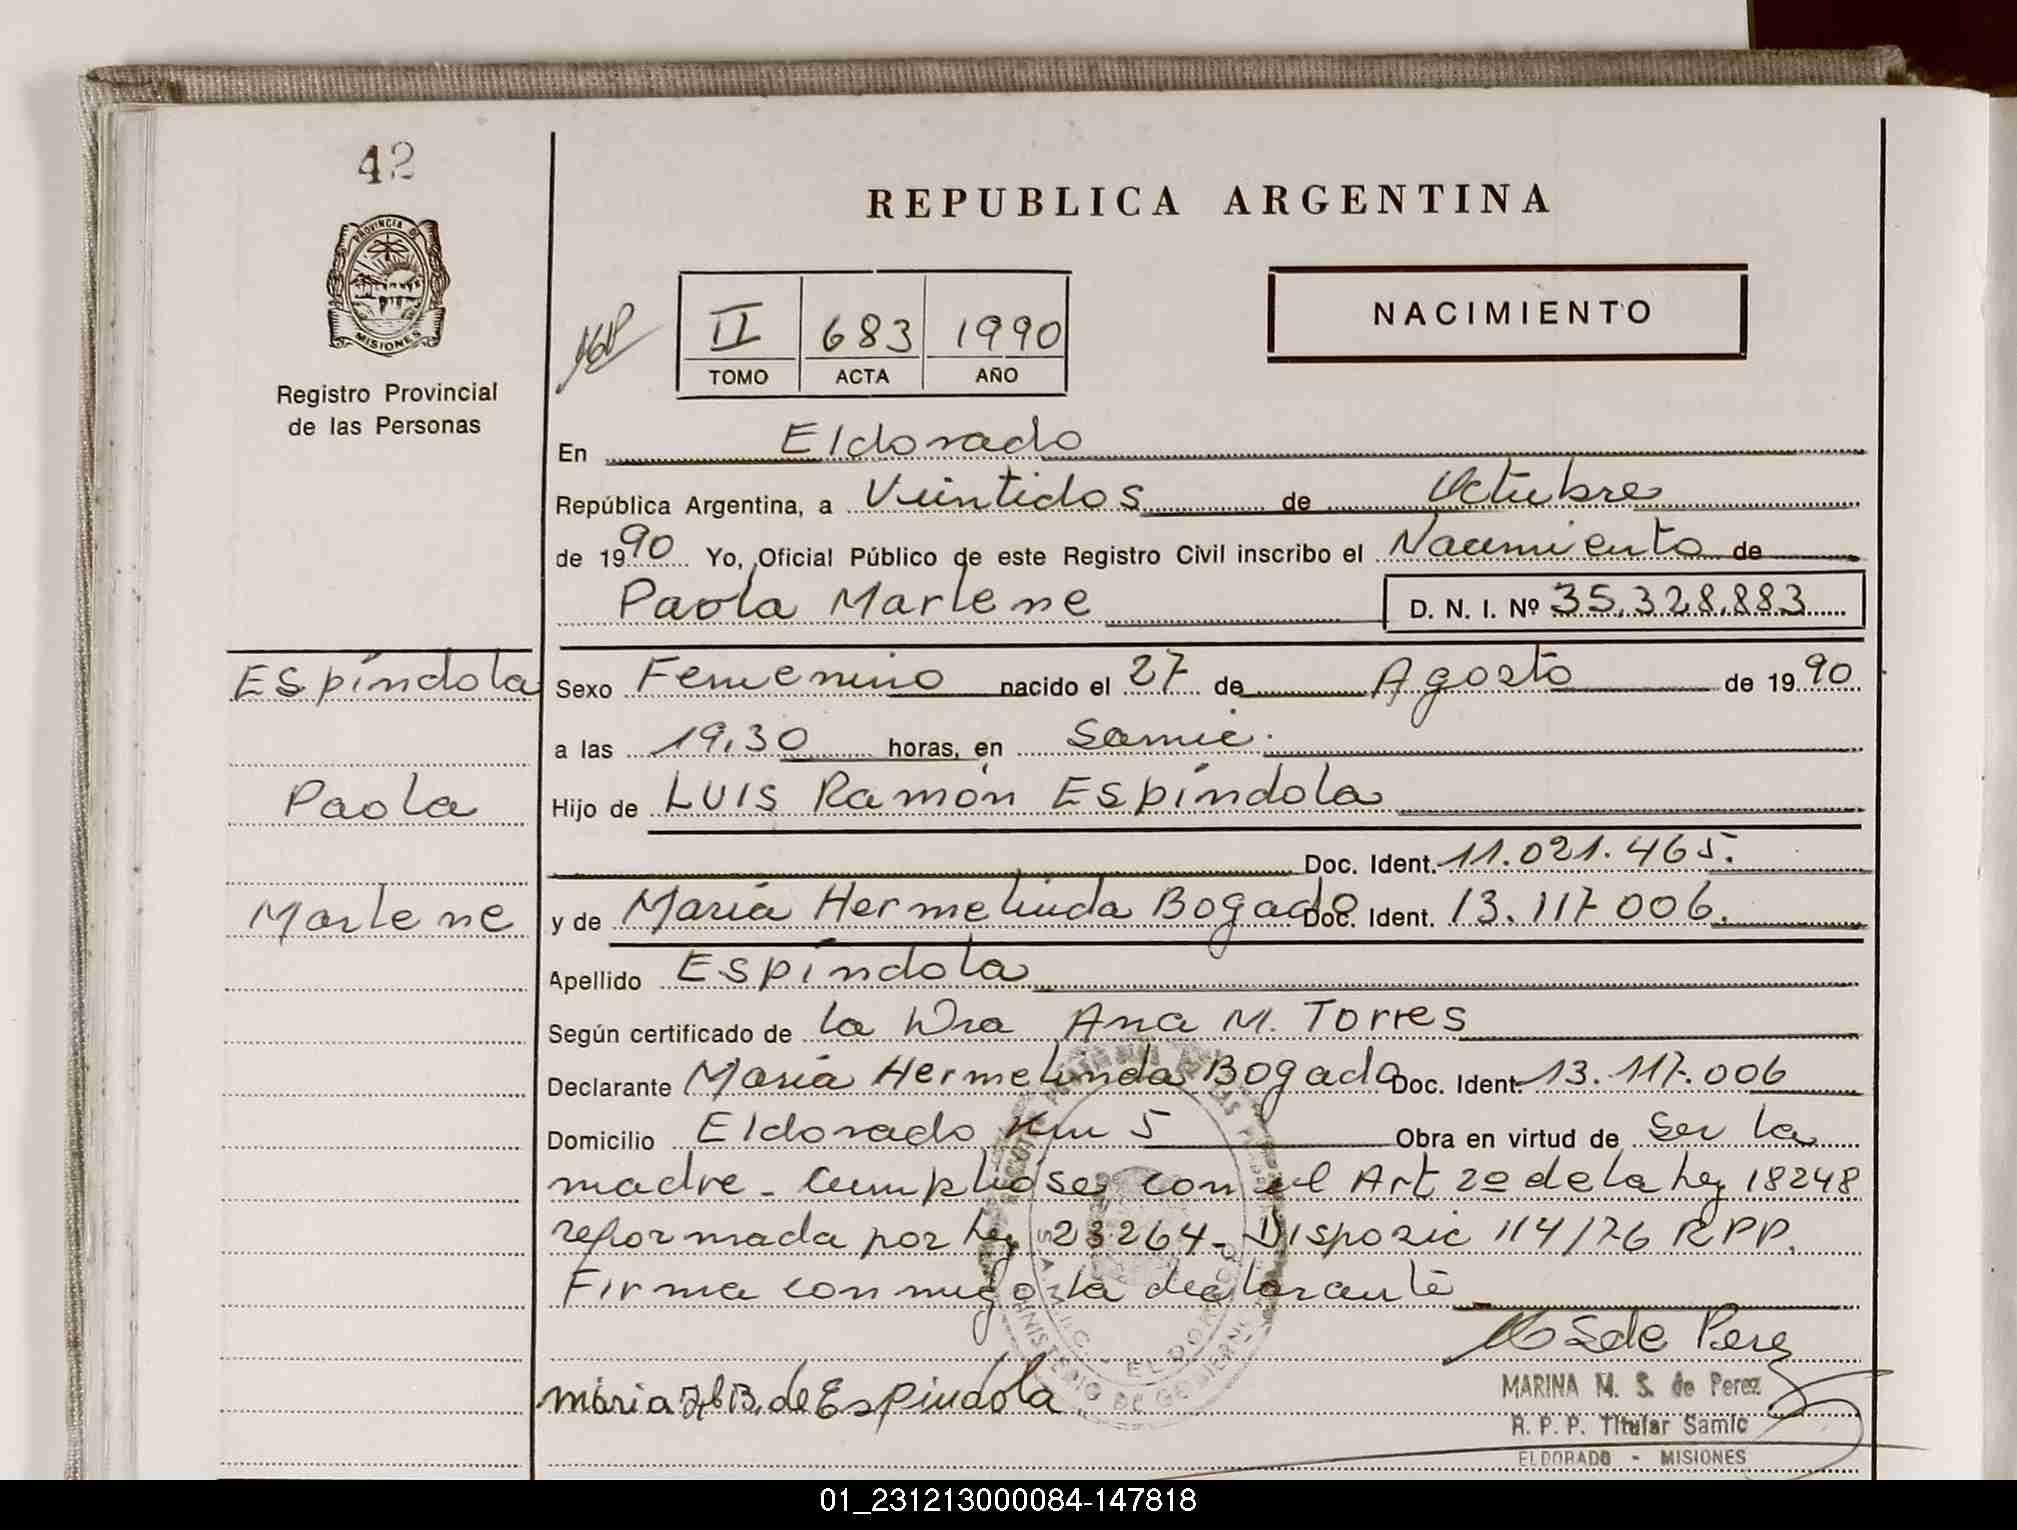 42
REPUBLICA ARGENTINA
PROVINCIA D
MISIONES
Registro Provincial
de las Personas
II 683 1990
TOMO ACTA AÑO
NACIMIENTO
En Eldorado
República Argentina, a Veintidos de Octubre
de 1990 Yo, Oficial Público de este Registro Civil inscribo el Nacimiento de
Paola Marlene D. N. I. Nº 35.328.883
Espíndola
Sexo Femenino nacido el 27 de Agosto de 1990
a las 19,30 horas, en Samic.
Paola
Hijo de Luis Ramón Espíndola
Doc. Ident. 11.021.465.
Marlene
y de María Hermelinda Bogado Doc. Ident. 13.117.006.
Apellido Espíndola
Según certificado de la Dra Ana M. Torres
Declarante María Hermelinda Bogado Doc. Ident. 13.117.006
Domicilio Eldorado Km 5 Obra en virtud de ser la
madre - Cumplióse con el Art 2º de la Ley 18248
reformada por Ley 23264 - Disposic 114/76 RPP.
Firma conmigo la declarante
S.A.M.I.C. ELDORADO
MINISTERIO DE GOBIERNO
M S de Perez
maria H B. de Espindola
MARINA M. S. de Perez
R. P. P. Titular Samic
ELDORADO - MISIONES
01_231213000084-147818